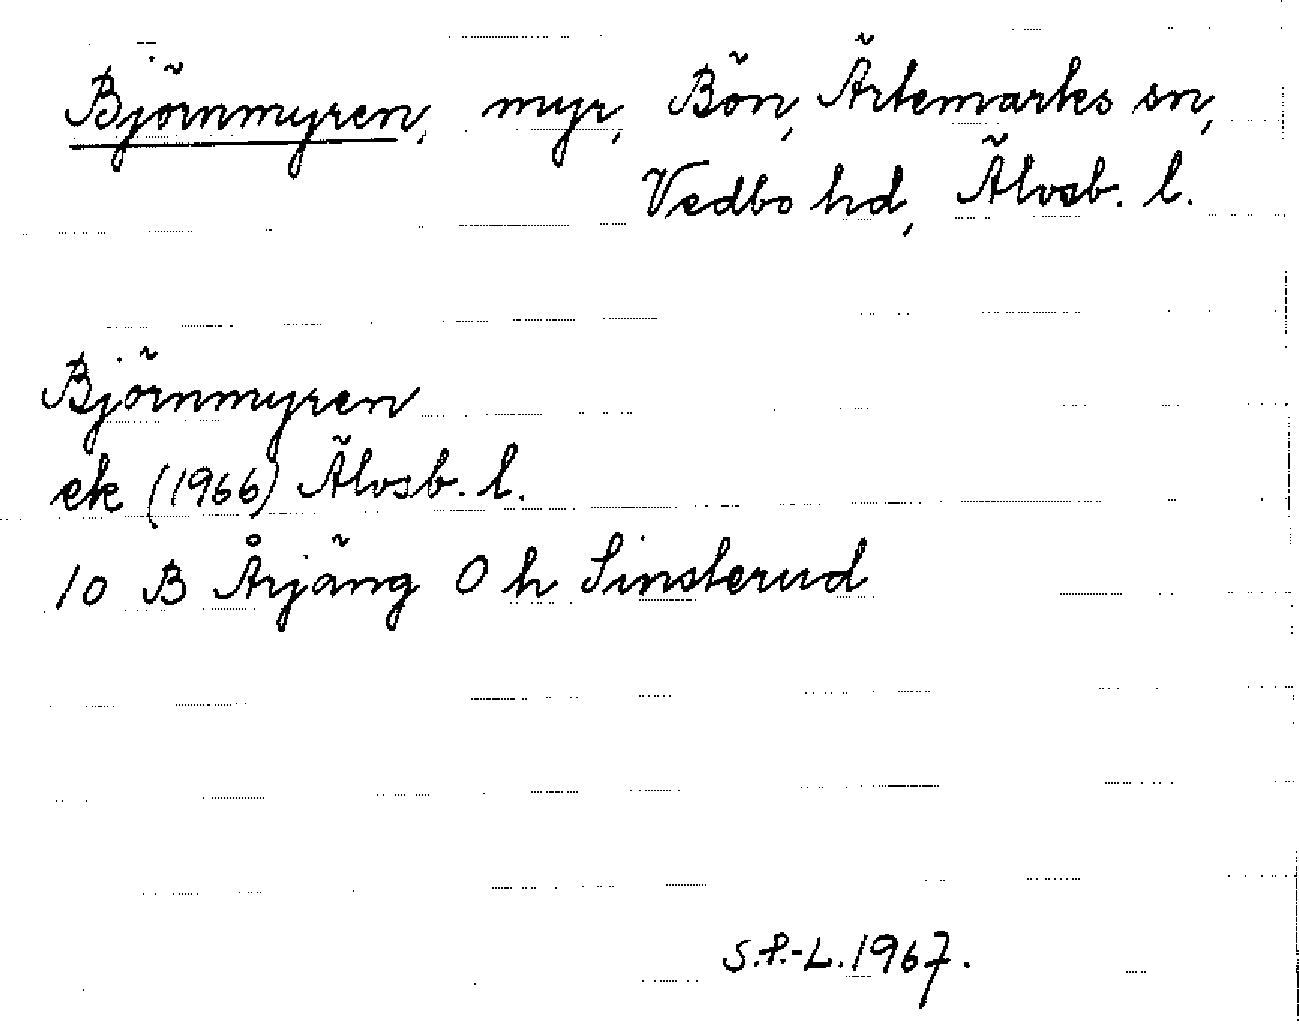 Björnmyren, myr, Bön, Ärtemarks sn,
Vedbo hd, Älvsb. l.
Björnmyren
ek (1966) Älvsb. l.
10 B Årjäng 0 h Sinsterud
S.P.-L. 1967.